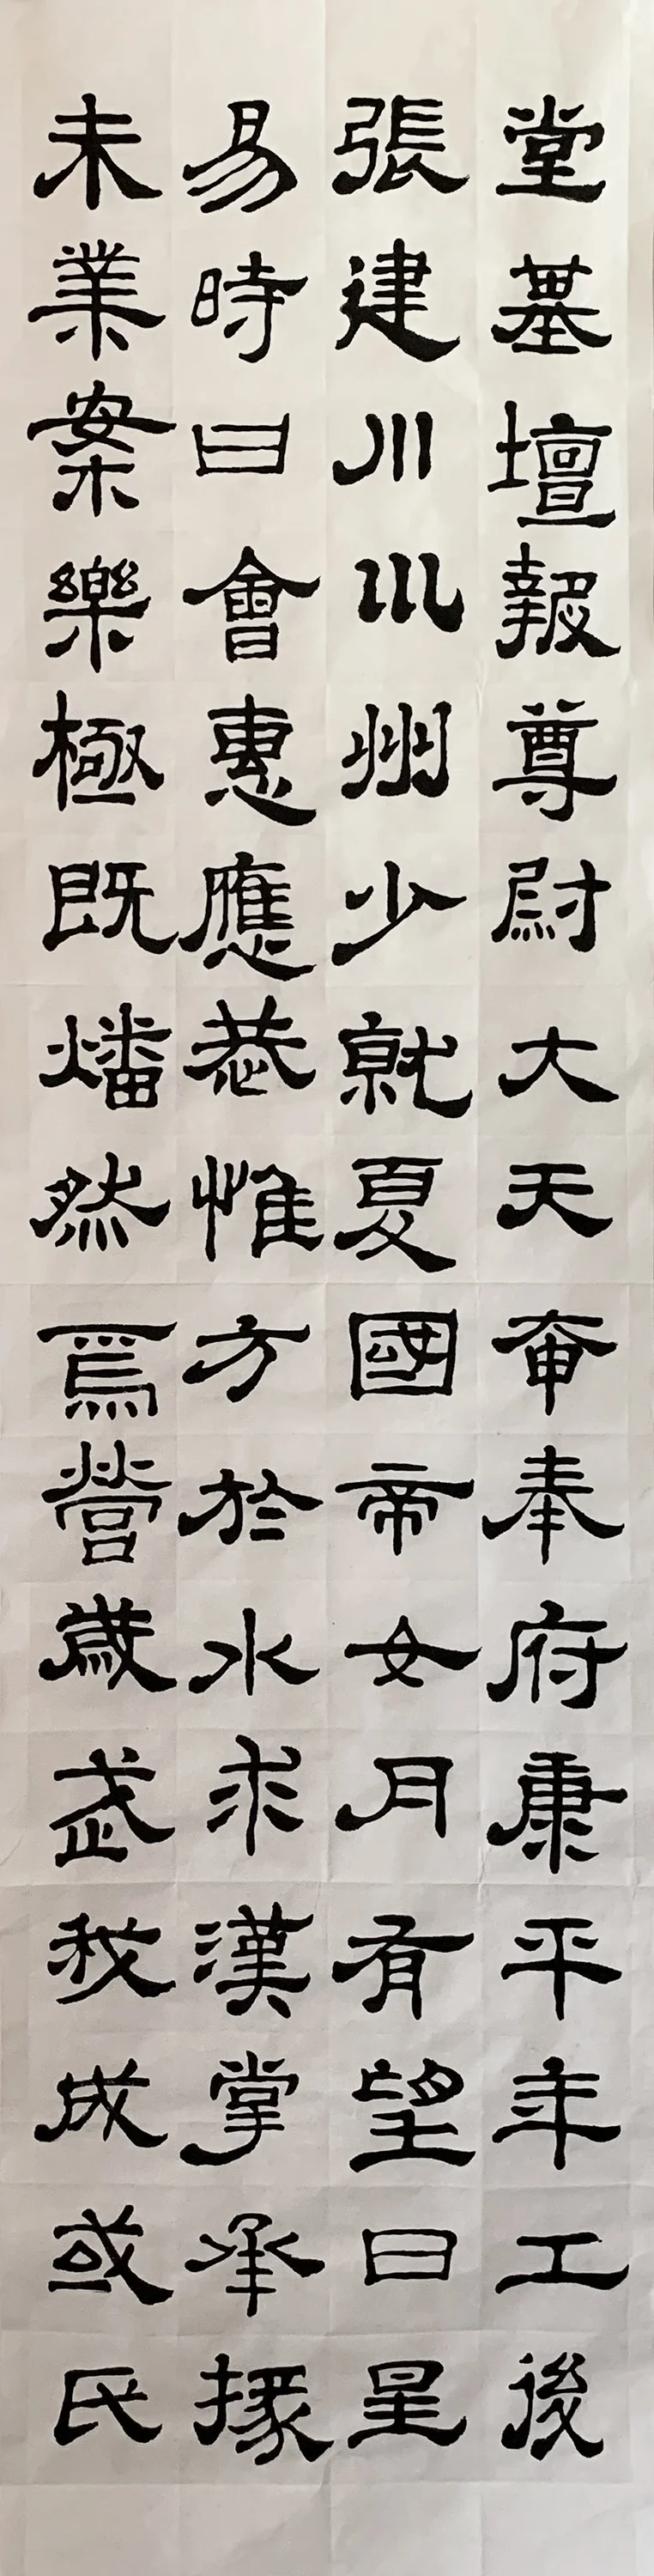 堂基壇報尊尉大天奄奉府康平年工後
張建川川州少就夏國帝女月有望日星
易時曰會惠應恭惟方於水求漢掌承掾
未業案樂極既燔然焉營歲武我成或氏